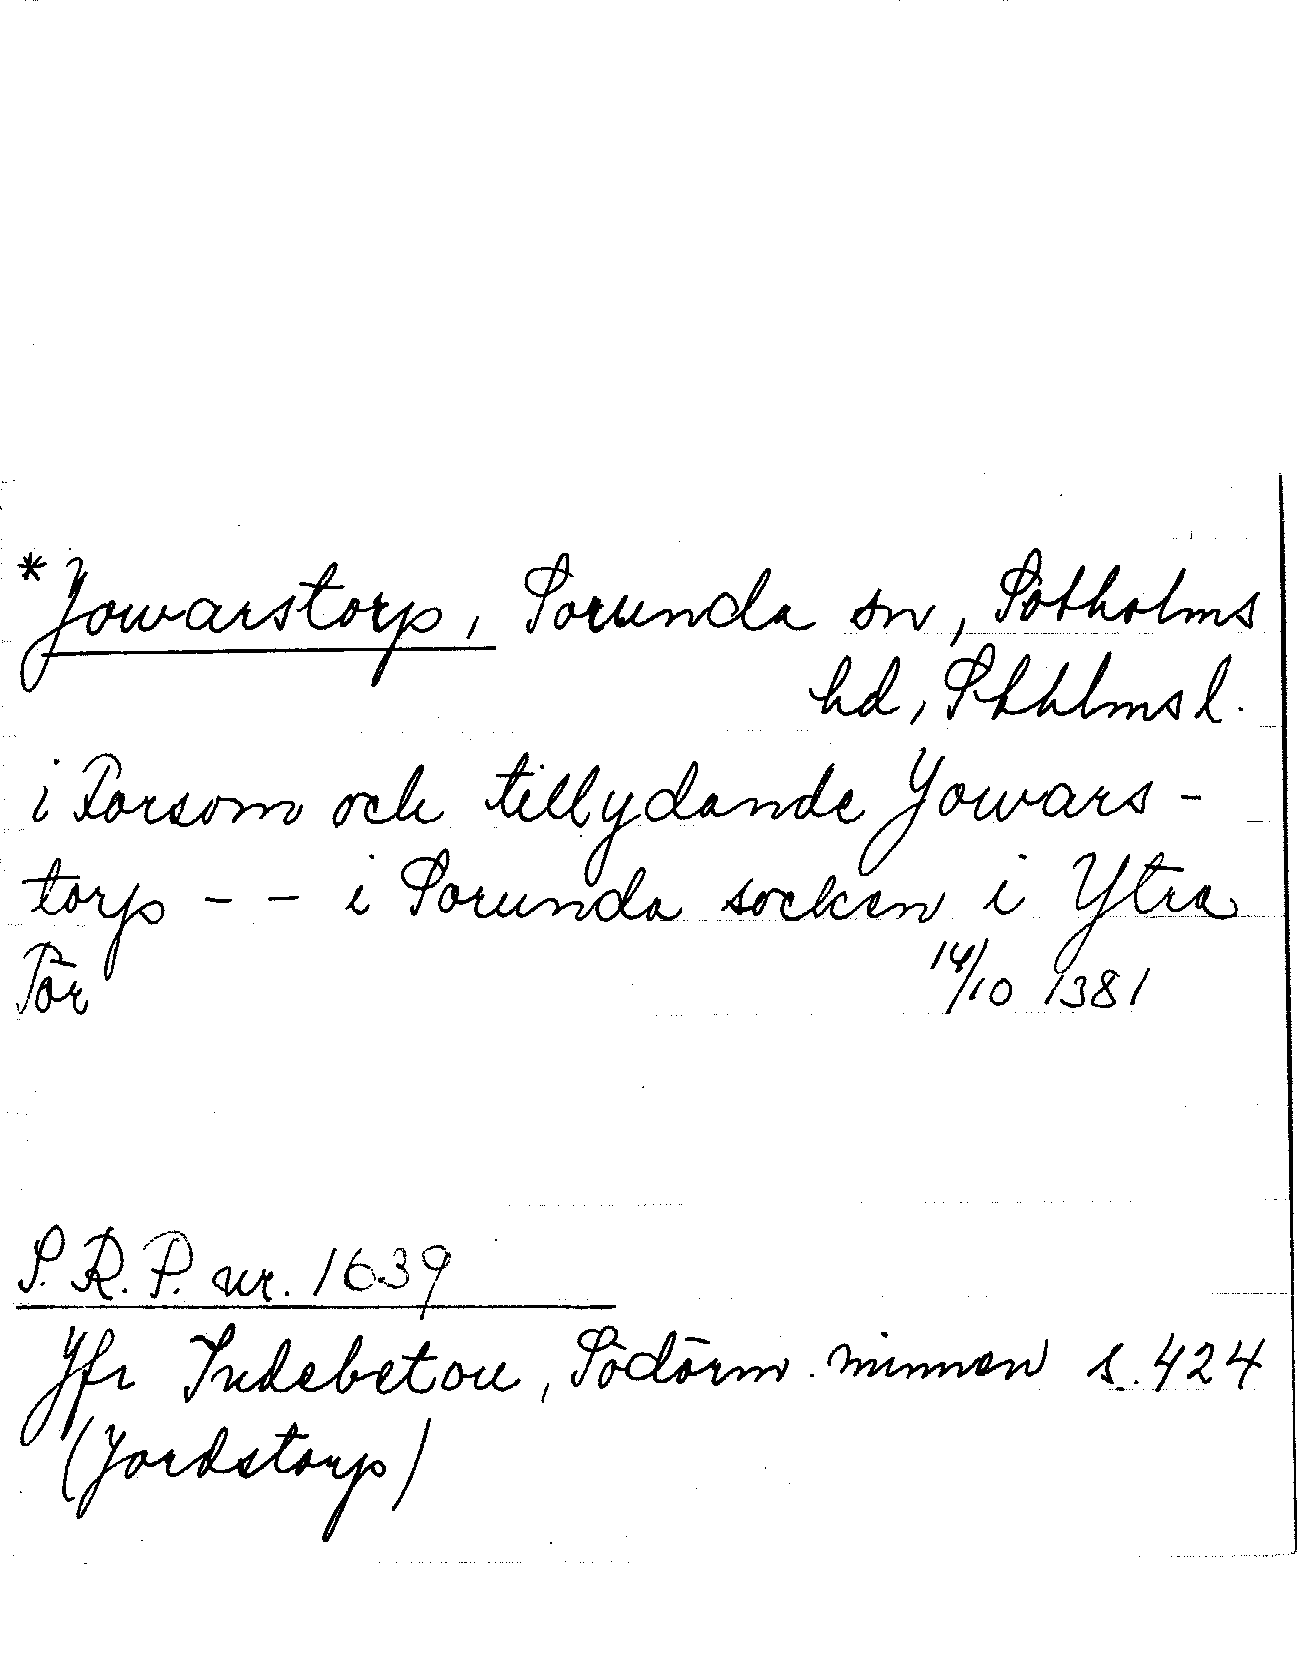 *Jowarstorp, Sorunda sn, Sotholms
hd, Sthlms l.
i Forsom och tillydande Jowars-
torp - - i Sorunda socken i Ytra
Tör 14/10 1381
S.R.P. nr. 1639
Jfr Indebetou, Södörm. minnen s. 424
(Jordstorp)